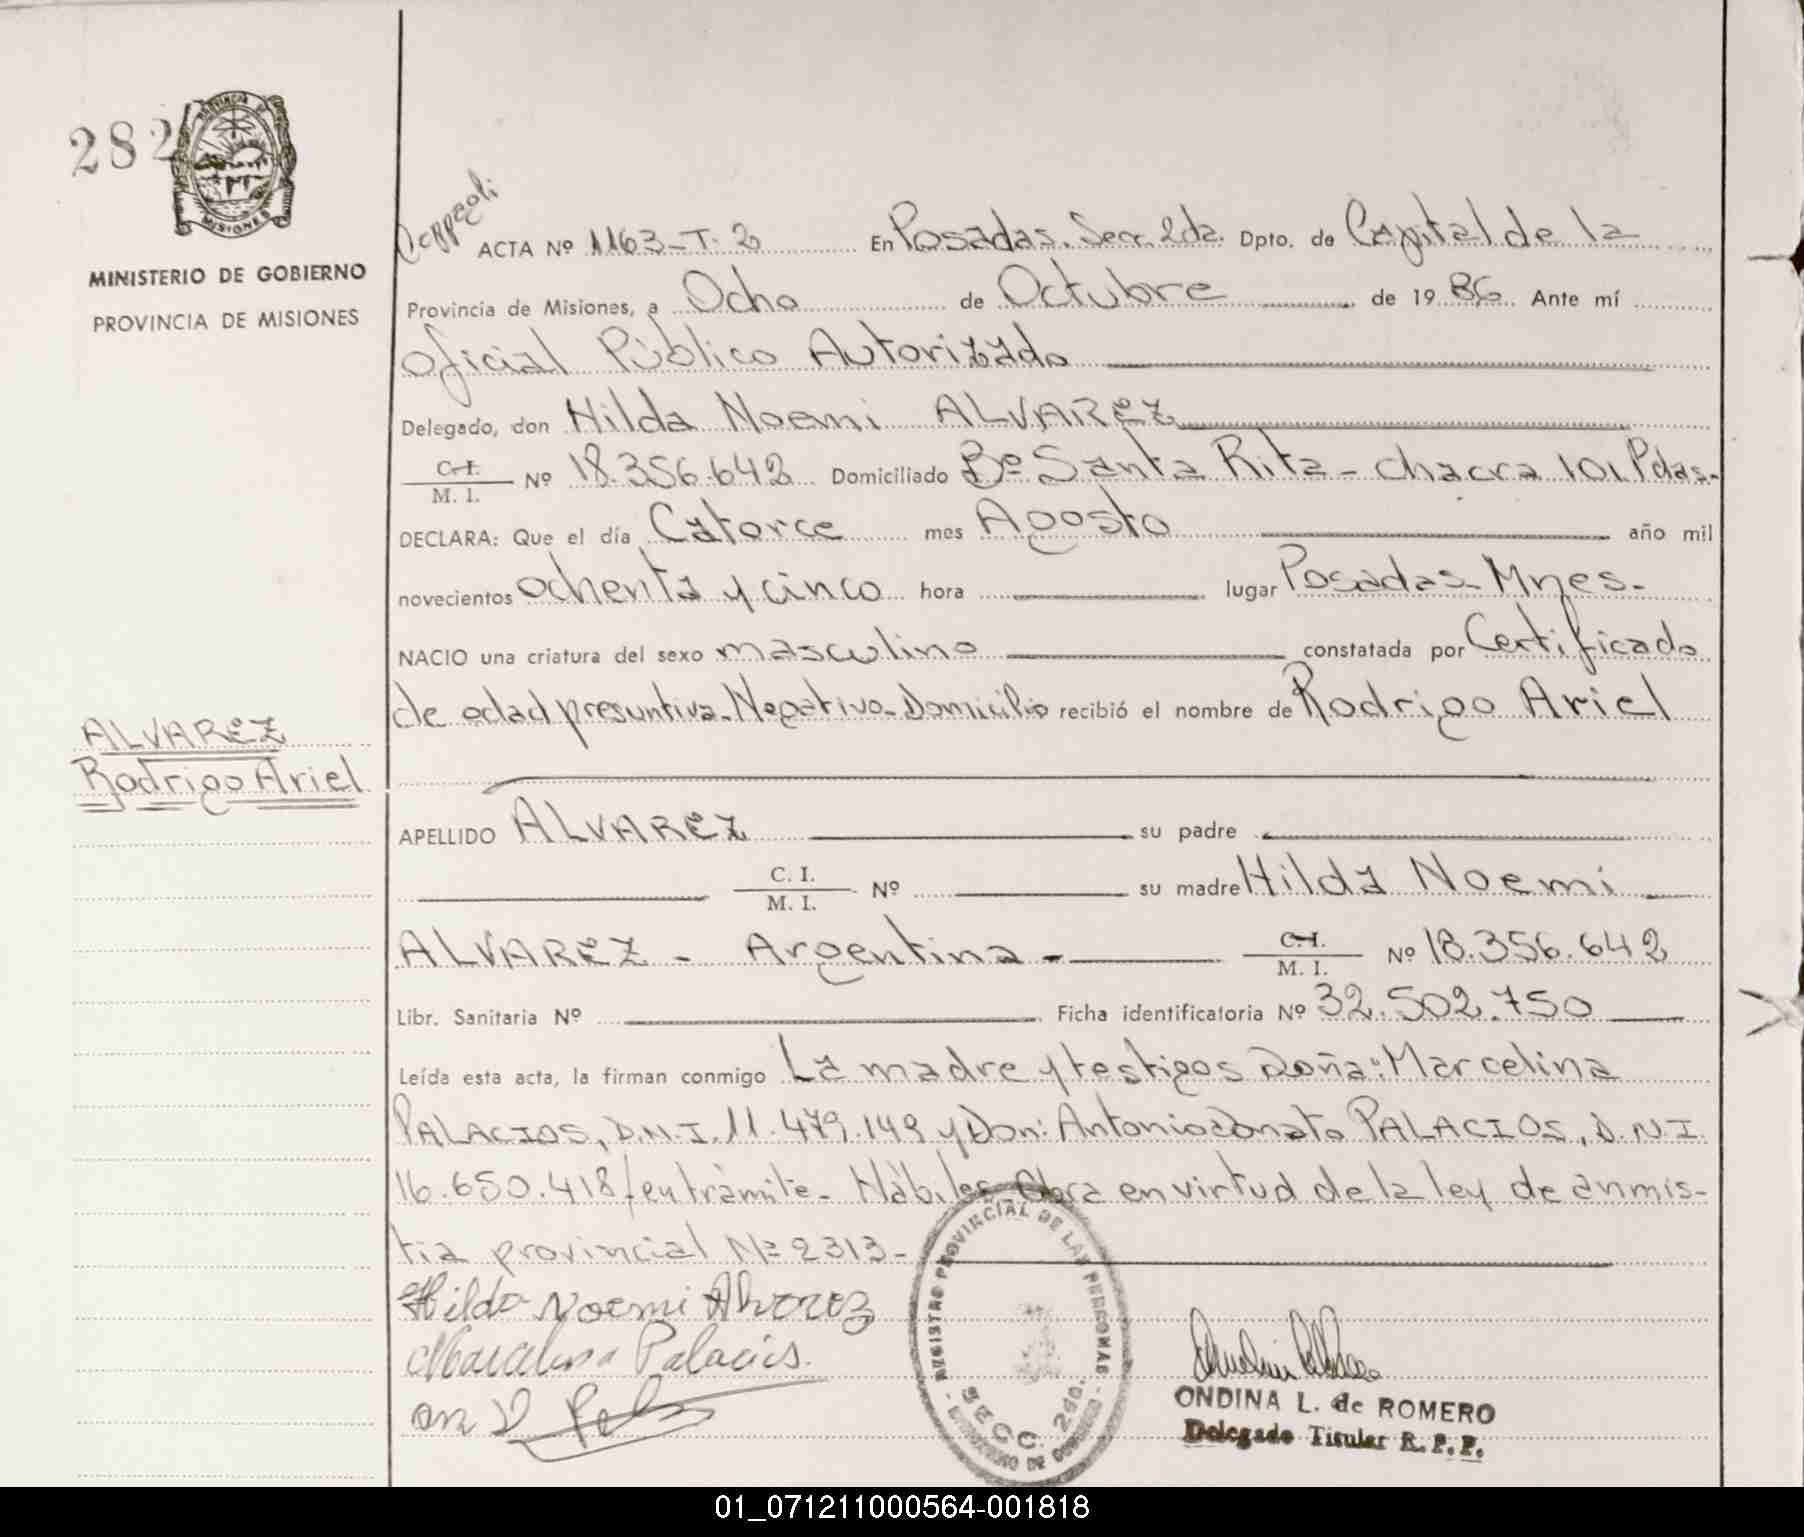 282
PROVINCIA DE
MISIONES
MINISTERIO DE GOBIERNO
PROVINCIA DE MISIONES
ACTA Nº 1163-T-2 En Posadas. Secc. 2da. Dpto. de Capital de la
Provincia de Misiones, a Ocho de Octubre de 1986 Ante mí
Oficial Público Autorizado
Delegado, don Hilda Noemi ALVAREZ
C.I. / M. I. Nº 18.356.642 Domiciliado Bº Santa Rita - chacra 101. Pdas.-
DECLARA: Que el día Catorce mes Agosto año mil
novecientos ochenta y cinco hora lugar Posadas - Mnes.-
NACIO una criatura del sexo masculino constatada por Certificado
de edad presuntiva - Negativo - Domicilio recibió el nombre de Rodrigo Ariel
ALVAREZ
Rodrigo Ariel
APELLIDO ALVAREZ su padre
C. I. / M. I. Nº su madre Hilda Noemi
ALVAREZ - Argentina - C.I. / M. I. Nº 18.356.642
Libr. Sanitaria Nº Ficha identificatoria Nº 32.502.750
Leída esta acta, la firman conmigo La madre y testigos Doña: Marcelina
PALACIOS, D.N.I. 11.479.149 y Don: Antonio Donato PALACIOS, D.N.I.
16.650.418/en tramite - Hábiles Obra en virtud de la ley de anmis-
tia provincial Nº 2313-
Hilda Noemi Alvarez
Marcelina Palacios.
REGISTRO PROVINCIAL DE LAS PERSONAS
SECC. 2da.
ONDINA L. de ROMERO
Delegado Titular R. P. P.
01_071211000564-001818